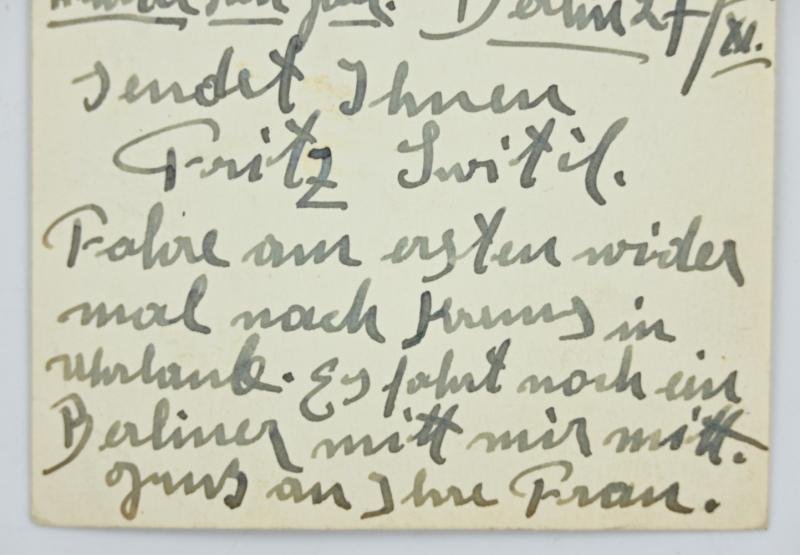 Berlin 27/XI.
sendet Ihnen
Fritz Switil.
Fahre am ersten wider
mal nach Krems in
Uhrlaub. Es fahrt noch ein
Berliner mitt mir mitt.
Grus an Ihre Frau.